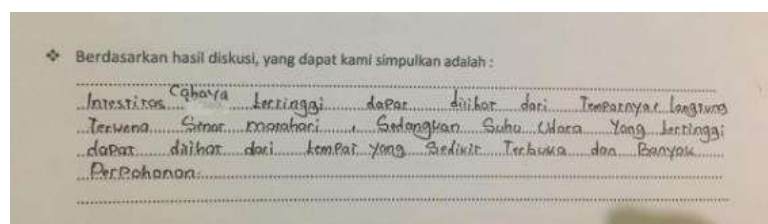 ❖ Berdasarkan hasil diskusi, yang dapat kami simpulkan adalah :
Intestitas Cahaya tertinggi dapat dilihat dari Tempatnya langsung
Terkena Sinar matahari, Sedangkan Suhu Udara Yang tertinggi
dapat dilihat dari tempat yang Sedikit Terbuka dan Banyak
Perpohonan.